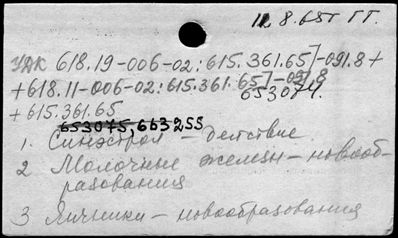 12.8.65г ГГ.
УДК 618.19-006-02:615.361.65]-091.8+
+618.11-006-02:615.361.65]-091.8
653074.
+615.361.65
653075, 663255
1. Синэстрол - действие
2 Молочные желез - новооб-
разования
3 Яичники - новообразования